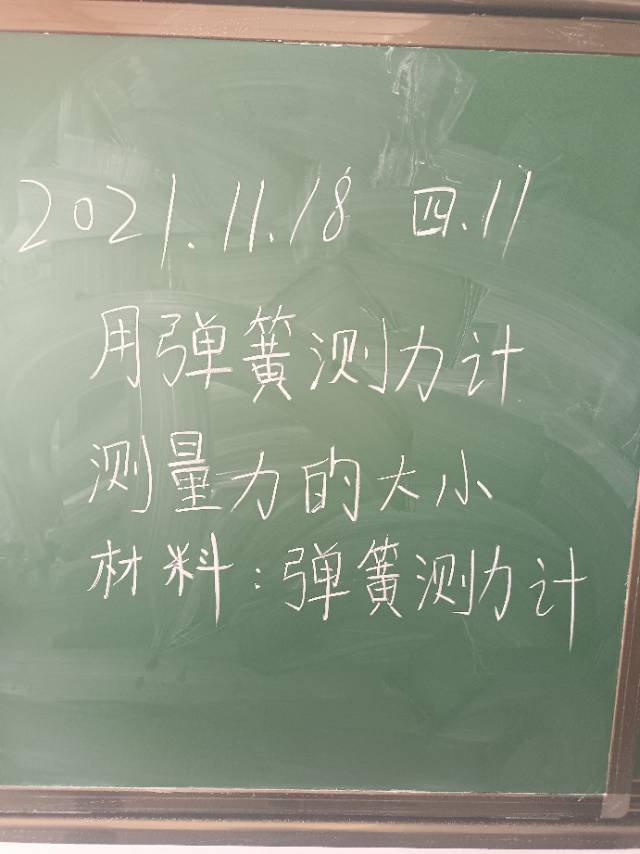 2021.11.18 四.11
用弹簧测力计
测量力的大小
材料:弹簧测力计